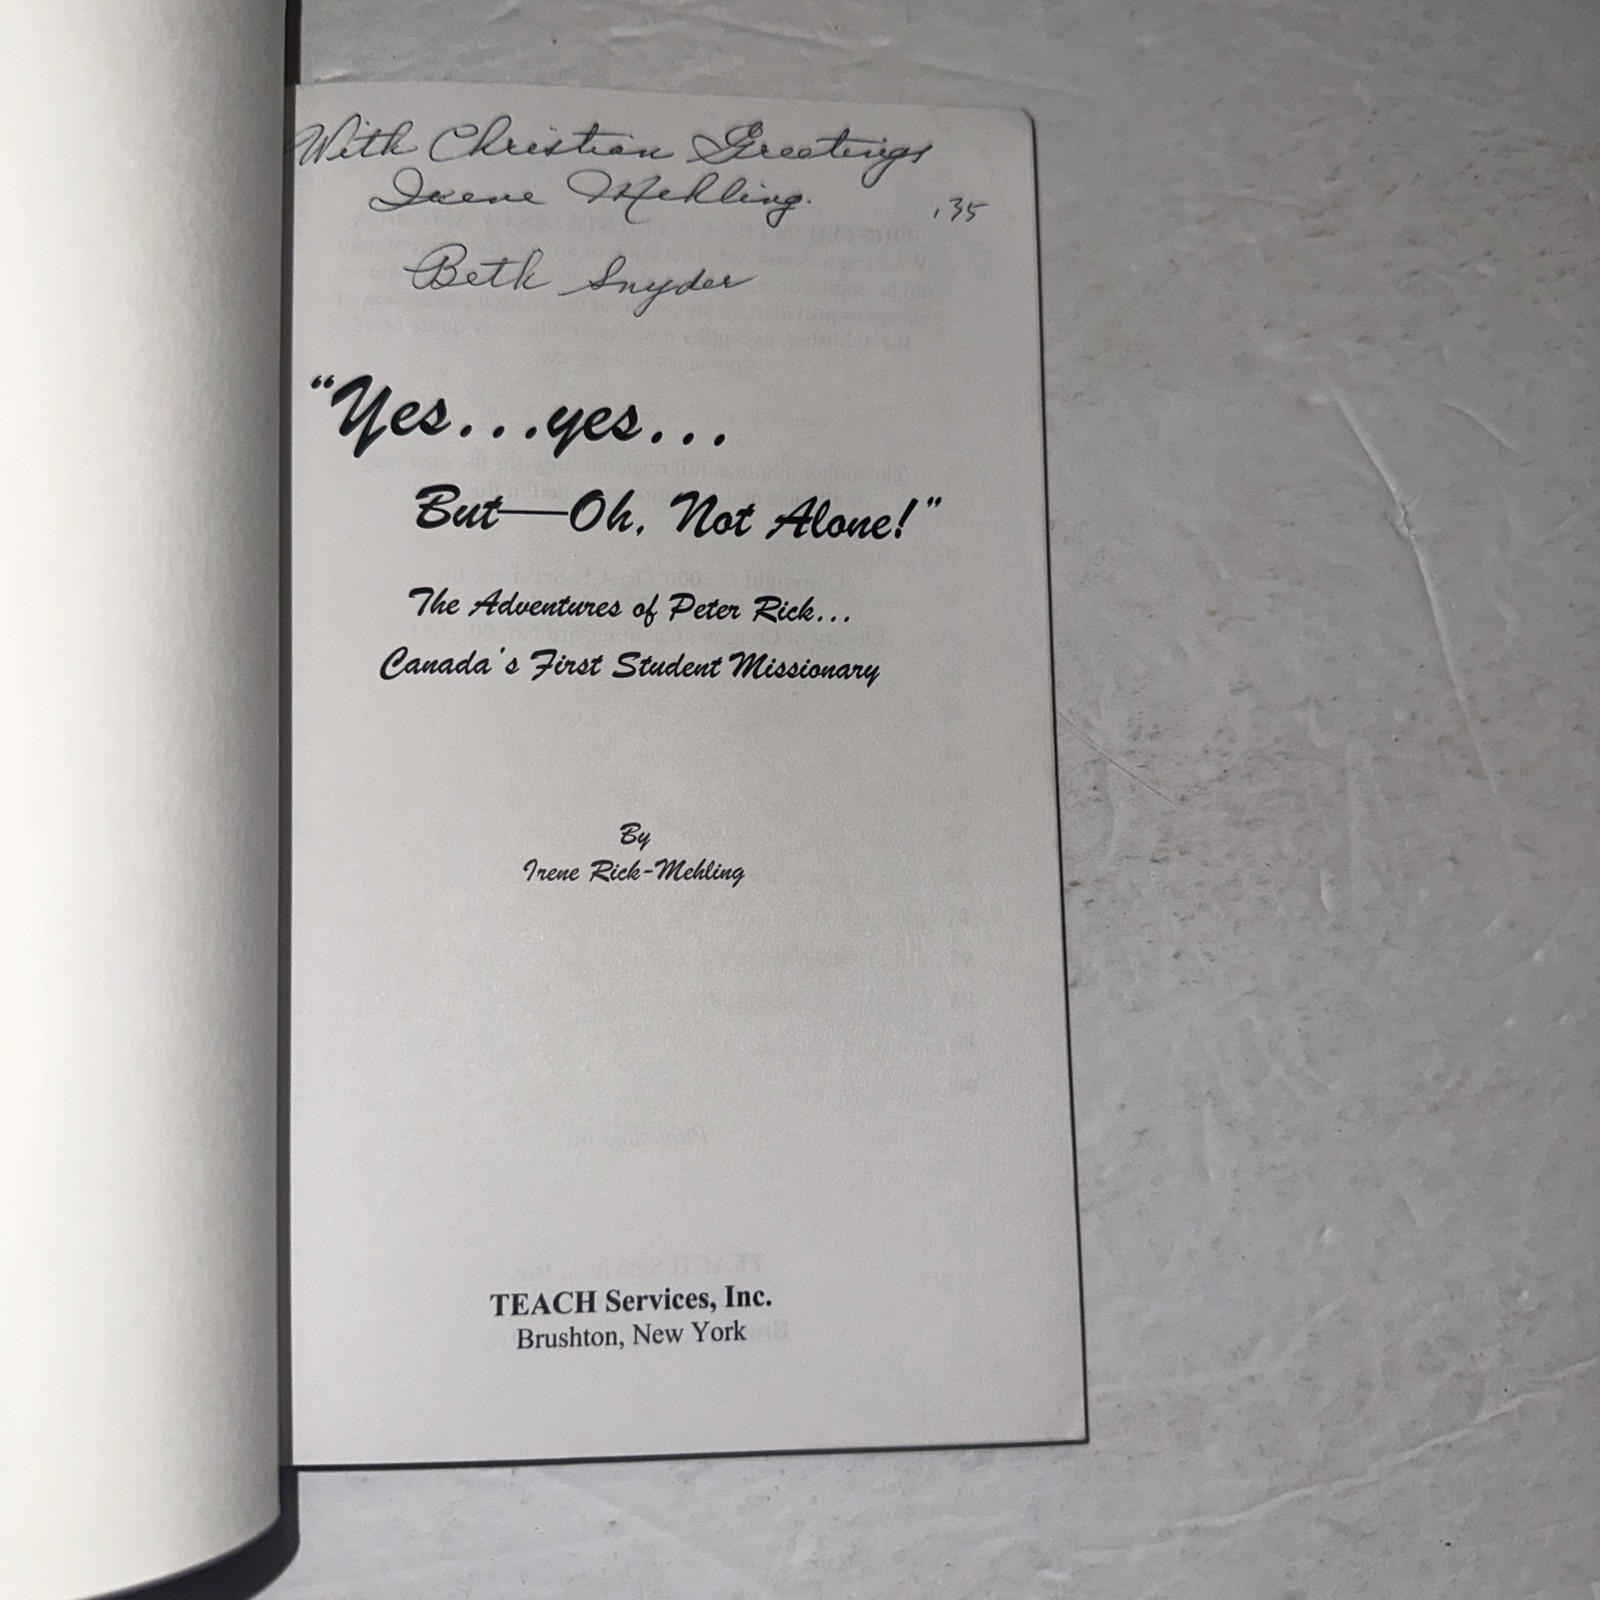 With Christian Greetings
Irene Mehling.
.35
Beth Snyder
“Yes...yes...
But—Oh, Not Alone!”
The Adventures of Peter Rick...
Canada's First Student Missionary
By
Irene Rick-Mehling
TEACH Services, Inc.
Brushton, New York